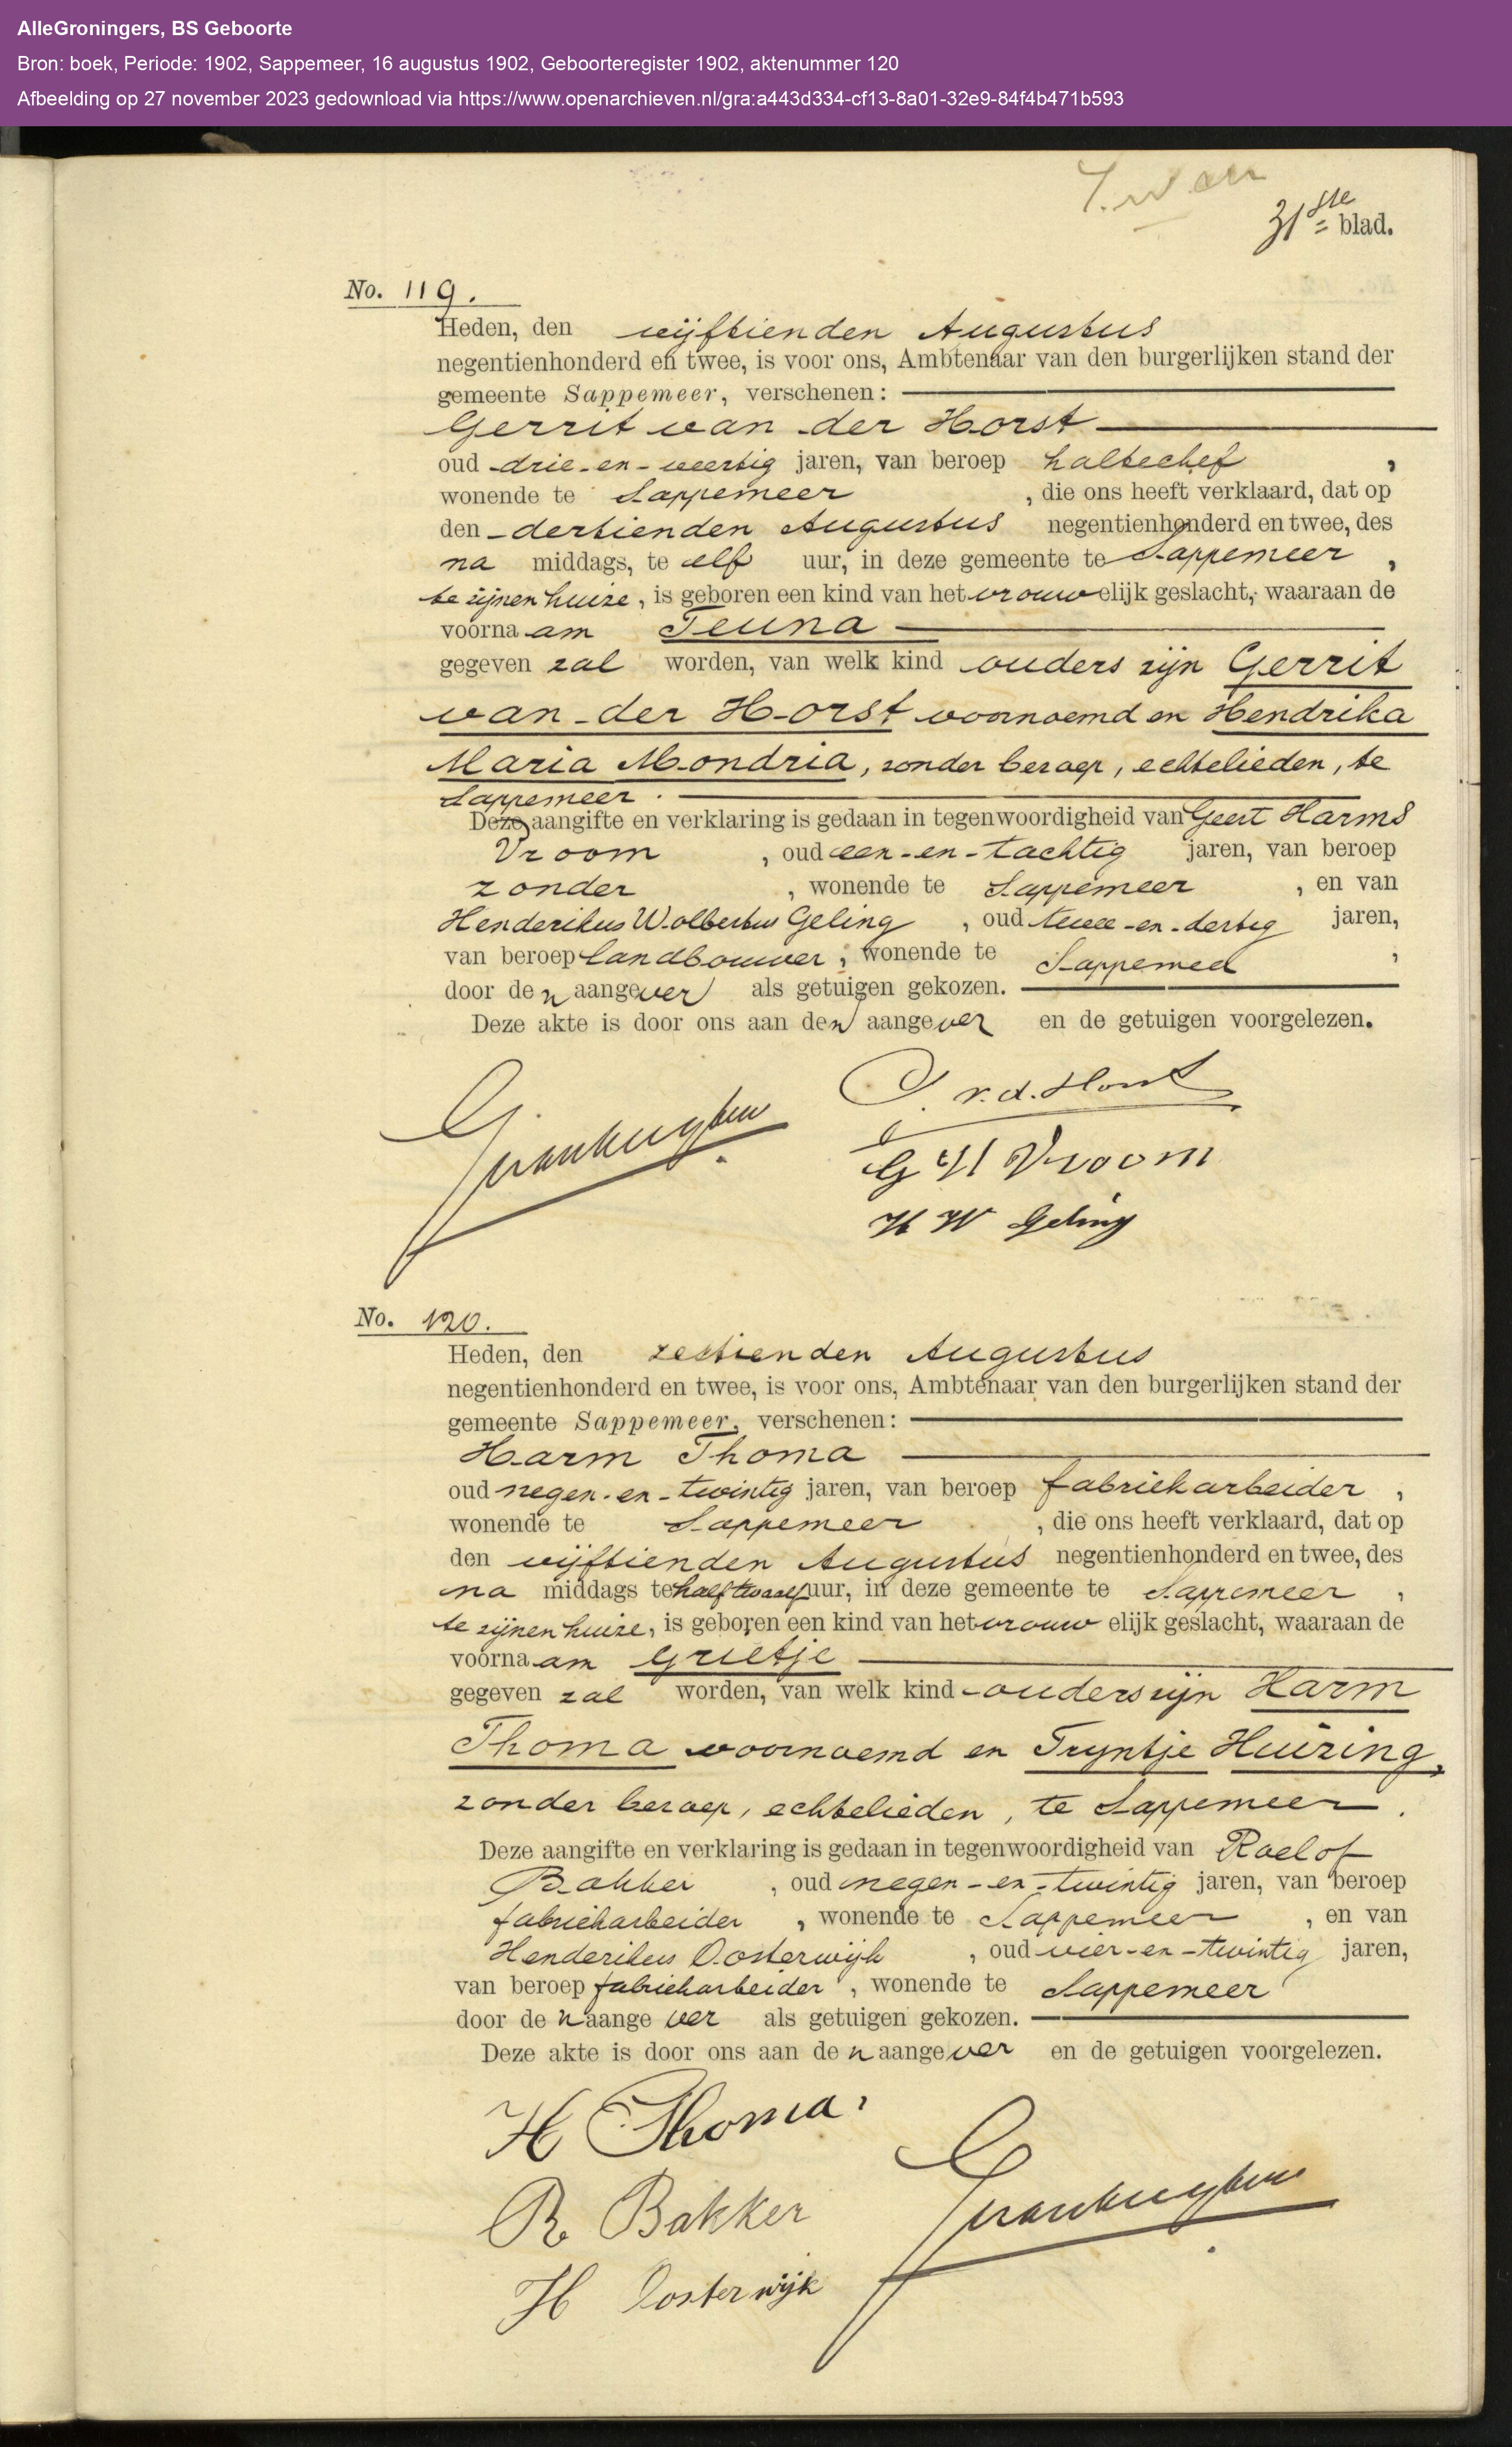 AlleGroningers, BS Geboorte
Bron: boek, Periode: 1902, Sappemeer, 16 augustus 1902, Geboorteregister 1902, aktenummer 120
Afbeelding op 27 november 2023 gedownload via https://www.openarchieven.nl/gra:a443d334-cf13-8a01-32e9-84f4b471b593
31ste blad.
No. 119.
Heden, den vijftienden Augustus
negentienhonderd en twee, is voor ons, Ambtenaar van den burgerlijken stand der
gemeente Sappemeer, verschenen:
Gerrit van der Horst
oud drie-en-veertig jaren, van beroep haltechef,
wonende te Sappemeer, die ons heeft verklaard, dat op
den dertienden Augustus negentienhonderd en twee, des
na middags, te elf uur, in deze gemeente te Sappemeer,
te zijnen huize, is geboren een kind van het vrouwelijk geslacht, waaraan de
voornaam Teuna
gegeven zal worden, van welk kind ouders zijn Gerrit
van der Horst voornoemd en Hendrika
Maria Mondria, zonder beroep, echtelieden, te
Sappemeer.
Deze aangifte en verklaring is gedaan in tegenwoordigheid van Geert Harms
Vroom, oud een-en-tachtig jaren, van beroep
zonder, wonende te Sappemeer, en van
Henderikus Wolbertus Geling, oud twee-en-dertig jaren,
van beroep landbouwer, wonende te Sappemeer,
door den aangever als getuigen gekozen.
Deze akte is door ons aan den aangever en de getuigen voorgelezen.
G. v.d. Horst
G H Vroom
H W Geling
No. 120.
Heden, den zestienden Augustus
negentienhonderd en twee, is voor ons, Ambtenaar van den burgerlijken stand der
gemeente Sappemeer, verschenen:
Harm Thoma
oud negen-en-twintig jaren, van beroep fabriekarbeider,
wonende te Sappemeer, die ons heeft verklaard, dat op
den vijftienden Augustus negentienhonderd en twee, des
na middags te half twaalf uur, in deze gemeente te Sappemeer,
te zijnen huize, is geboren een kind van het vrouwelijk geslacht, waaraan de
voornaam Grietje
gegeven zal worden, van welk kind ouders zijn Harm
Thoma voornoemd en Tryntje Huizing,
zonder beroep, echtelieden, te Sappemeer.
Deze aangifte en verklaring is gedaan in tegenwoordigheid van Roelof
Bakker, oud negen-en-twintig jaren, van beroep
fabriekarbeider, wonende te Sappemeer, en van
Henderikus Oosterwijk, oud vier-en-twintig jaren,
van beroep fabriekarbeider, wonende te Sappemeer
door den aangever als getuigen gekozen.
Deze akte is door ons aan den aangever en de getuigen voorgelezen.
H Thoma
R Bakker
H Oosterwijk